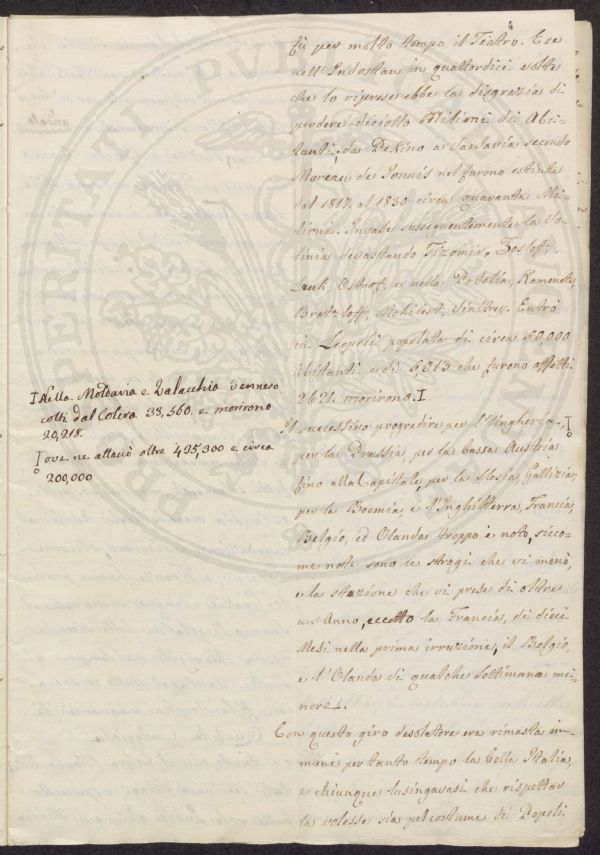 4
fù per molto tempo il Teatro. Ese
nell'Indostan in quattordici volte
che lo riprese ebbe la disgrazia di
perdere diciotto Milioni di Abi-
tanti, da Pekino a Varsavia secondo
Moreau de Jonnés nel furono estinte
dal 1817. al 1830 circa quaranta Mi-
lioni. Invase susseguentemente la Vo-
linia devastando Tizomir, Zostoff,
Lauk, Osthof, e nella Podolia, Kamenets,
Bratzloff, Mohilest, Vinitzey. Entrò
in Leopoli popolata di circa 50,000
Abitanti e di 5,013 che furono affetti
2621. morirono. I
Il successivo progredire per l'Ungheria,
per la Prussia, per la bassa Austria
fino alla Capitale, per la Slesia, Gallizia,
per la Boemia, e l'Inghilterra, Francia,
Belgio, ed Olanda troppo è noto, sicco-
me note sono le stragi che vi menò,
e la stazione che vi prese di oltre
un Anno, eccetto la Francia, di dieci
Mesi nella prima irruzione, il Belgio,
e l'Olanda di qualche Settimana mi-
nore.
Con questo giro desolatore era rimasta im-
mune per tanto tempo la bella Italia,
e chiunque lusingavasi che rispettar
la volesse sia pel costume di Popoli
I Nella Moldavia e Valacchia vennero
colti dal Colera 33,560. e morirono
20,218.
ove ne attaccò oltre 435,300 e circa
200,000
PROSPERITATI PUB